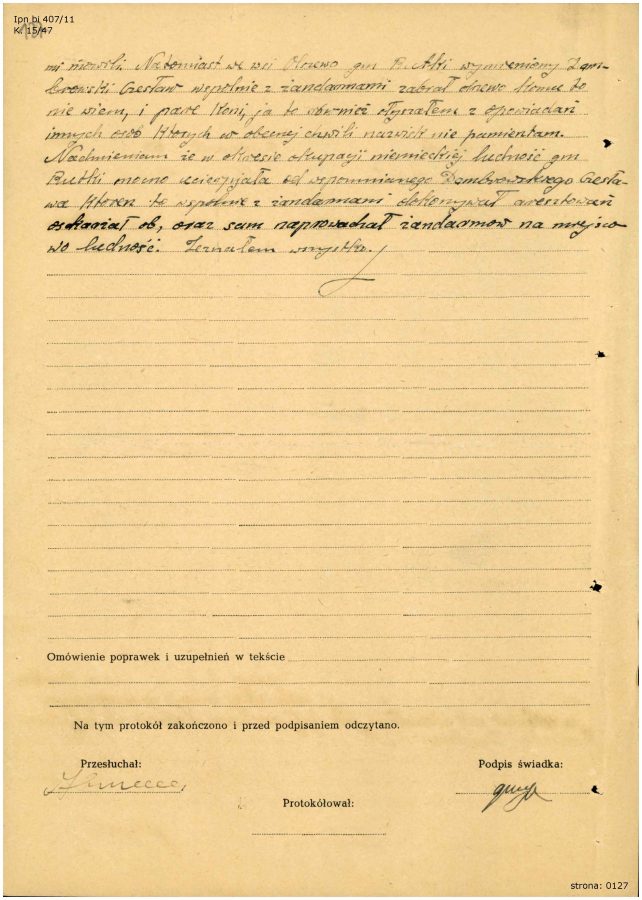 Ipn bi 407/11
K. 15/47
mi mówili. Natomiast we wsi Olszewo gm Rutki wymieniony Dąm-
browski Czesław wspólnie z żandarmami zabrał drzewo komu to
nie wiem, i parę koni, ja to również słyszałem z opowiadań
innych osób których w obecnej chwili nazwisk nie pamientam.
Nadmieniam że w okresie okupacji niemieckiej ludność gm
Rutki mocno ucierpiała od wspomnianego Dąmbrowskiego Czesła-
wa ktoren to wspólnie z żandarmani dokonywał aresztowań
oskarżał ob, oraz sam naprowadzał żandarmów na miejsco
wo ludność. Zeznałem wszystko.
Omówienie poprawek i uzupełnień w tekście
Na tym protokół zakończono i przed podpisaniem odczytano.
Przesłuchał:
Podpis świadka:
Protokółował:
strona: 0127